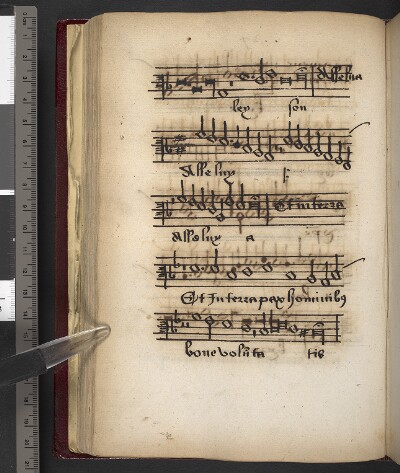 Alleluia
ley son
Alleluy
Et in terra
Alleluy a
Et in terra pax hominibꝰ
bone volūta tis